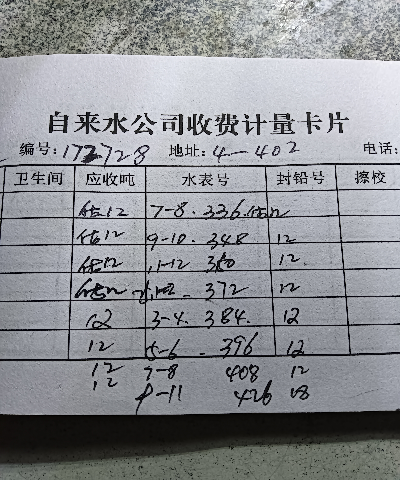 自来水公司收费计量卡片
编号:172728 地址:4-402 电话:
卫生间 应收吨 水表号 封铅号 擦校
估12 7-8. 336.估12
估12 9-10. 348 12
估12 11-12 360 12.
估12 1-2 372 12
12 3-4. 384. 12
12 5-6. 396 12
12 7-8 408 12
12 9-11 426 18